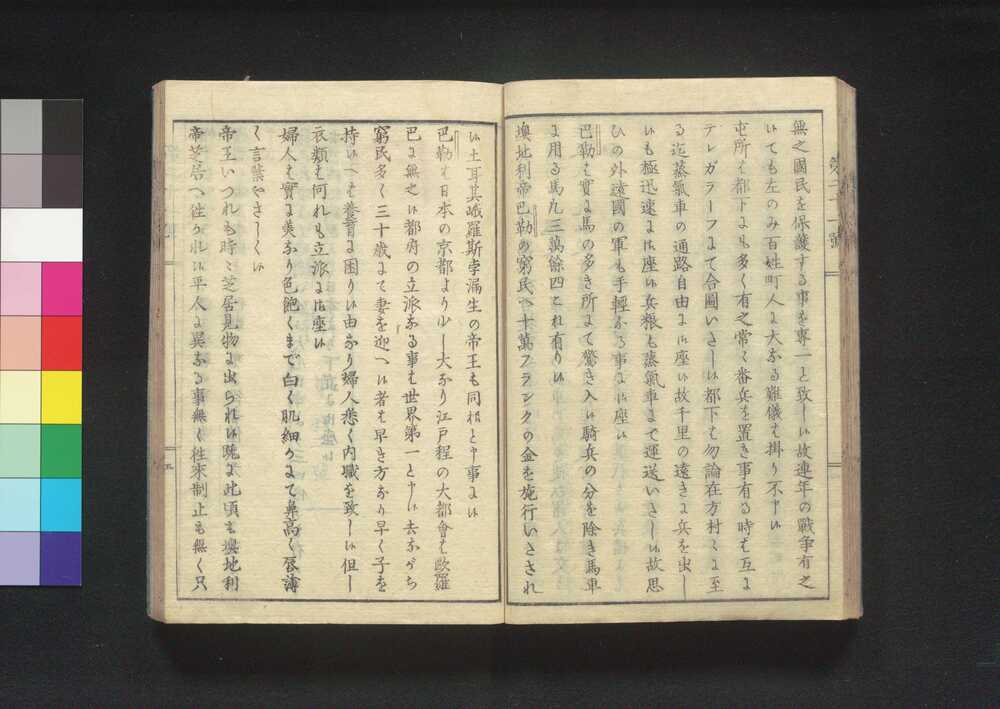 無之國民を保護する事を専一と致し候故連年の戰爭有之
候ても左のみ百姓町人に大なる難儀は掛り不申候
屯所は都下にも多く有之常に番兵を置き事有る時は互に
テレガラーフにて合圖いたし候都下は勿論在方村々に至
る迄蒸氣車の通路自由に御座候故千里の遠きに兵を出し
候も極迅速に御座候兵粮も蒸氣車にて運送いたし候故思
ひの外遠國の軍も手輕なる事に御座候
巴勒は實に馬の多き所にて驚き入候騎兵の分を除き馬車
に用る馬凡三萬餘四これ有り候
墺地利帝巴勒の窮民へ十萬フランクの金を施行いたされ
候土耳其峨羅斯孛漏生の帝王も同樣と申事に候
巴勒は日本の京都より少し大なり江戸程の大都會は歐羅
巴に無之候都府の立派なる事は世界第一と申候去ながら
窮民多く三十歳にて妻を迎へ候者は早き方なり早く子を
持候へは養育に困り候由なり婦人悉く内職を致し候但し
衣類は何れも立派に御座候
婦人は實に美なり色飽くまで白く肌細かにて鼻高く唇薄
く言葉やさしく候
帝王いつれも時々芝居見物に出られ候既に此頃も墺地利
帝芝居へ往かれ候平人に異なる事無く往來制止も無く只
第二十一號
五